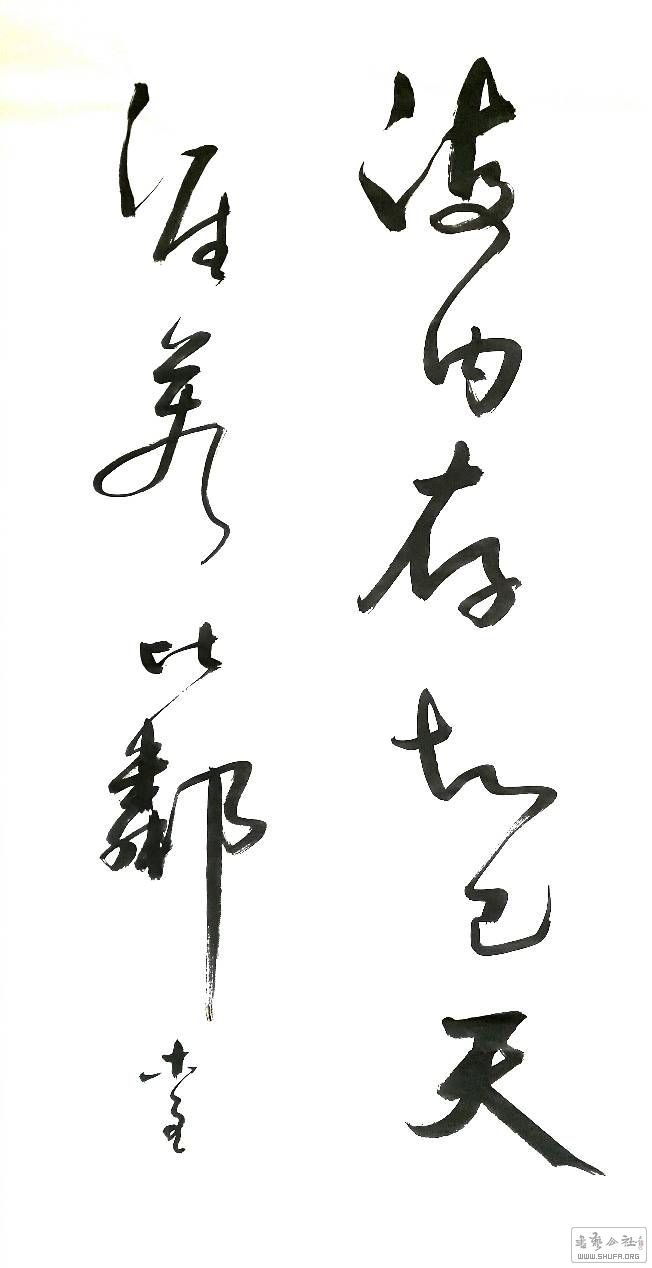 海内存知己天
涯若比鄰
書藝公社
WWW.SHUFA.ORG